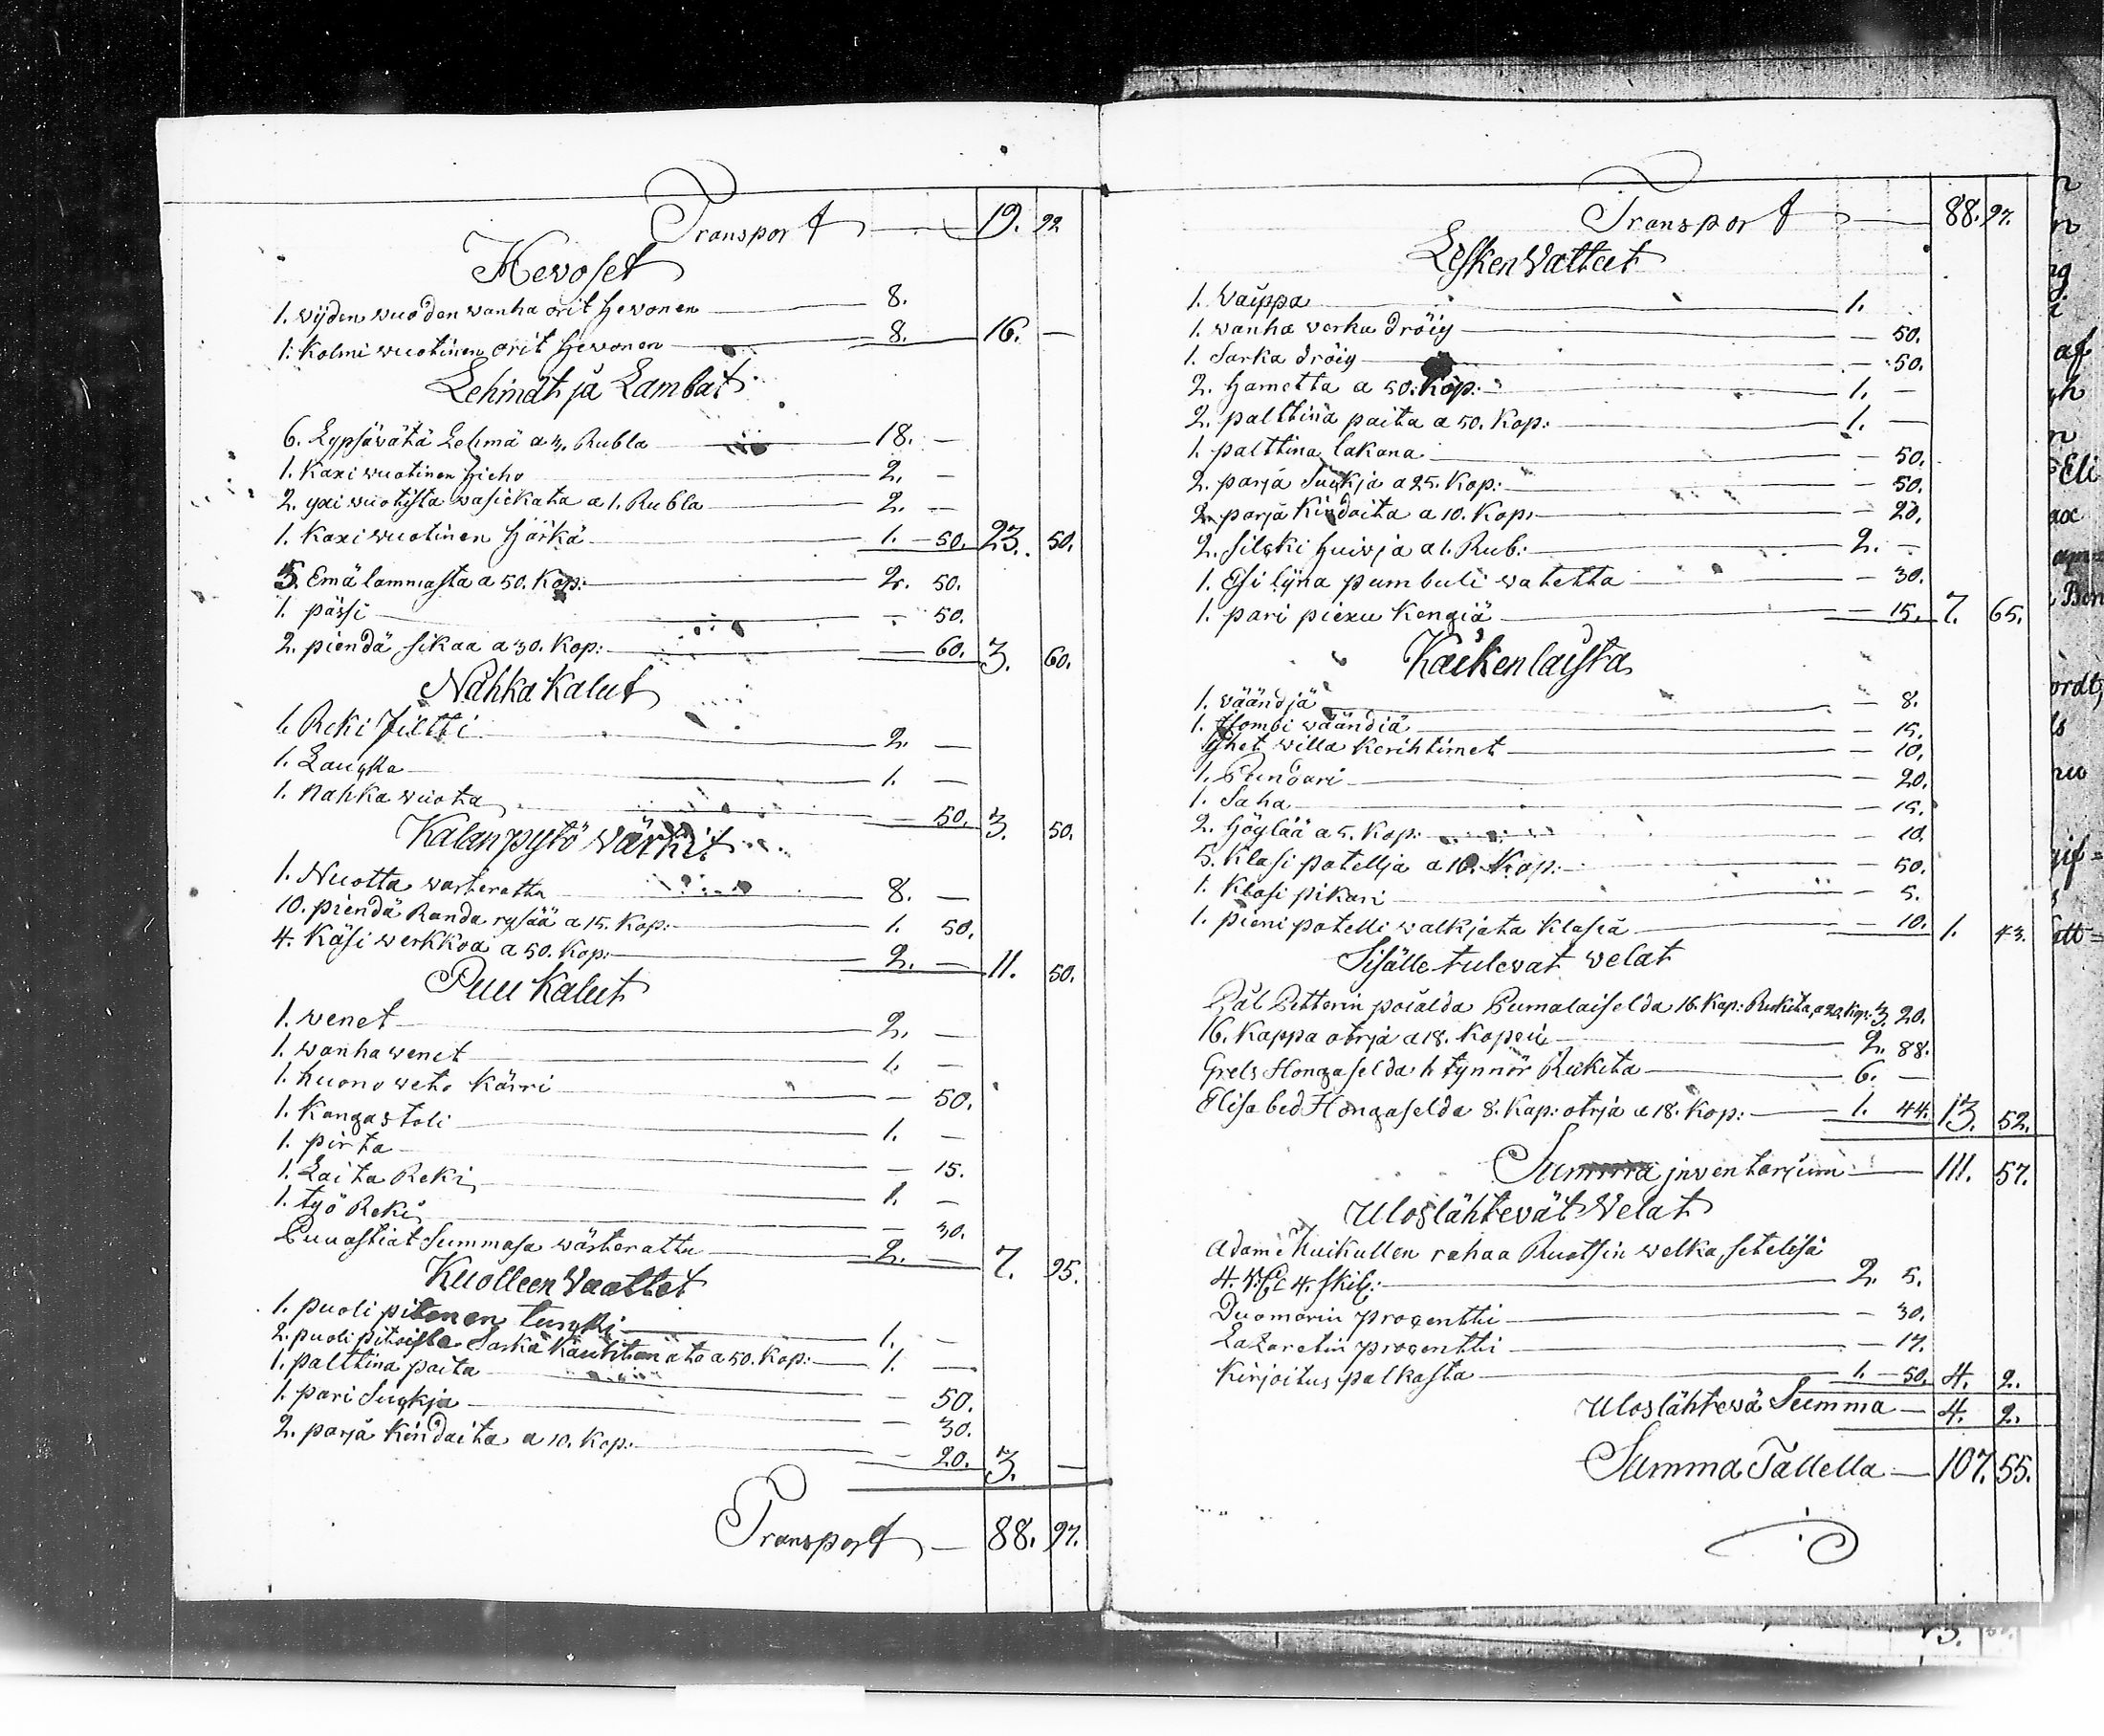 Transport — 19. 22
Hevoset
1. wijden wuoden wanha orit hevonen — 8.
1. Kolmi wuotinen orit hevonen — 8. 16. —
Lehmät ja Lambat
6. Lypsävätä Lehmä a 3. Rubla — 18. —
1. Kaxi wuotinen hieho — 2. —
2. yxi wuotista wasickata a 1. Rubla — 2. —
1. Kaxi wuotinen härkä — 1. 50. 23. 50.
5. Emä lammasta a 50. Kop: — 2. 50.
1. pässi — 50.
2. piendä sikaa a 30. Kop: — 60. 3. 60.
Nahka Kalut
1. Reki filtti — 2. —
1. Laugka — 1. —
1. Nahka wuota — 50. 3. 50.
Kalan pystö Värkit
1. Nuotta warterattu — 8. —
10. piendä Randa rysää a 15. Kop: — 1. 50.
4. Käsi werkkoa a 50. Kop: — 2. — 11. 50.
Puu Kalut
1. wenet — 2. —
1. wanha wenet — 1. —
1. huono weto Kärri — 50.
1. Kangastoli — 1. —
1. pirta — 15.
1. Laita Reki — 1. —
1. työ Reki — 30.
Puuastiat Summasa wärterattu — 2. — 7. 95.
Kuolleen Vaattet
1. puoli pitonen turkki — 1. —
2. puoli pitoista Sarka Kauhtanata a 50. Kop: — 1. —
1. palttina paita — 50.
1. pari Sukja — 30.
2. parja Kindaita a 10. Kop: — 20. 3. —
Transport — 88. 97.
Transport — 88. 97.
Lesken Vatteet
1. Vaippa — 1.
1. wanha verka dröig — 50.
1. Sarka dröig — 50.
2. hametta a 50. Kop: — 1. —
2. palttina paita a 50. Kop: — 1. —
1. palttina lakana — 50.
2. parja Sukja a 25. Kop: — 50.
2. parja Kindaita a 10. Kop: — 20.
2. silcki huivja a 1. Rub: — 2. —
1. Esi lijna pumbuli watetta — 30.
1. pari piexu Kengiä — 15. 7. 65.
Kaikenlaista
1. väändjä — 8.
1. Hombi wäändiä — 15.
Yhet willa Kerihtimet — 10.
1. Pundari — 20.
1. Saha — 15.
2. höylää a 5. Kop: — 10.
5. Klasi potellja a 10. Kop: — 50.
1. Klasi pikari — 5.
1. pieni potelli walkjata Klasia — 10. 1. 43.
Sisälle tulevat velat
Pål Petterin poialda Pumalaiselda 16. Kap: Rukita, a 20. Kop: 3. 20.
16. Kappa otrja a 18. Kopeii — 2. 88.
Grels Hongaselda ½ tynnör Rukita — 6. —
Elisabed Hongaselda 8. Kap: otrja a 18. Kop: — 1. 44. 13. 52.
Summa jnventarium — 111. 57.
Uloslähtevät Velat
Adami Kuikullen rahaa Ruottsin welka setelisä
4. 4. skil: — 2. 5.
Duomarin procenttii — 30.
Lazaretin procenttii — 17.
Kirjoitus palkasta — 1. 50. 4. 2.
Uloslähtevä Summa — 4. 2.
Summa Tallella — 107. 55.